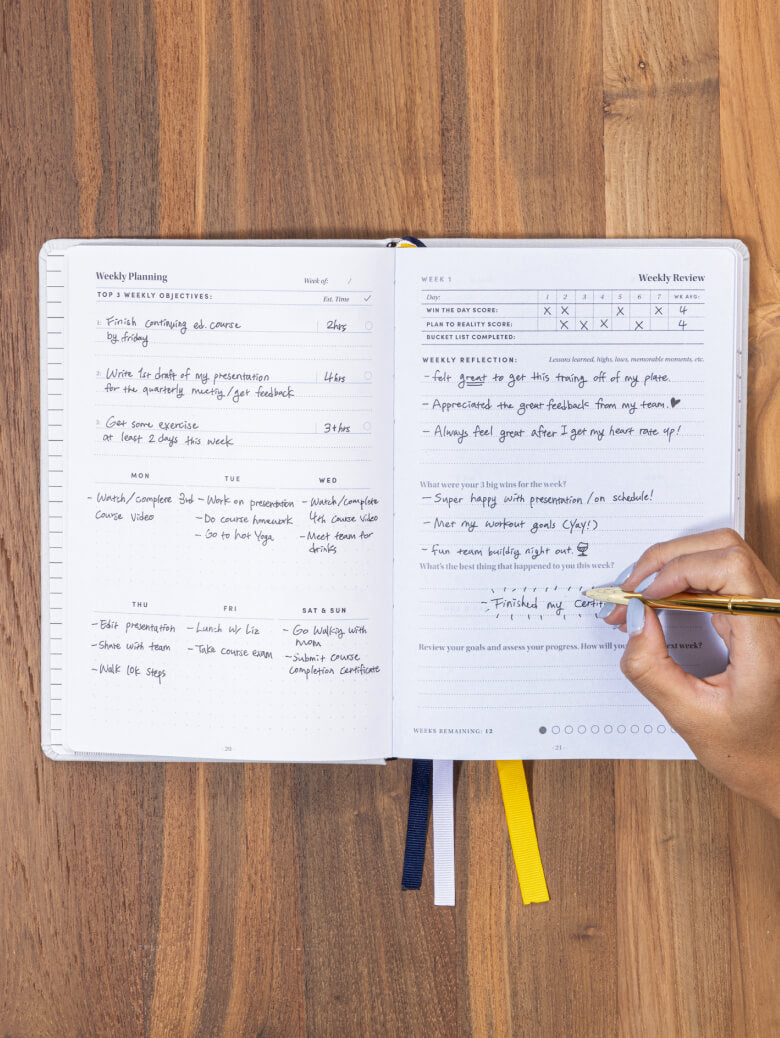 Weekly Planning
Week of: /
TOP 3 WEEKLY OBJECTIVES: Est. Time ✓
1. Finish continuing ed. course 2hrs
by friday
2. Write 1st draft of my presentation 4hrs
for the quarterly meetig/get feedback
3. Get some exercise 3+hrs
at least 2 days this week
MON
- Watch/complete 3rd
course video
TUE
- Work on presentation
- Do course homework
- Go to hot Yoga
WED
- Watch/complete
4th course video
- Meet team for
drinks
THU
- Edit presentation
- Share with team
- Walk 10k steps
FRI
- Lunch w/ Liz
- Take course exam
SAT & SUN
- Go Walkig with
mom
- Submit course
completion certificate
- 20 -
WEEK 1 Weekly Review
Day: 1 2 3 4 5 6 7 WK AVG:
WIN THE DAY SCORE: X X X X 4
PLAN TO REALITY SCORE: X X X X 4
BUCKET LIST COMPLETED:
WEEKLY REFLECTION: Lessons learned, highs, lows, memorable moments, etc.
- felt great to get this traing off of my plate.
- Appreciated the great feedback from my team. ♥
- Always feel great after I get my heart rate up!
What were your 3 big wins for the week?
- Super happy with presentation /on schedule!
- Met my workout goals (Yay!)
- fun team buildig night out.
What's the best thing that happened to you this week?
- Finished my certi
Review your goals and assess your progress. How will you next week?
WEEKS REMAINING: 12
- 21 -